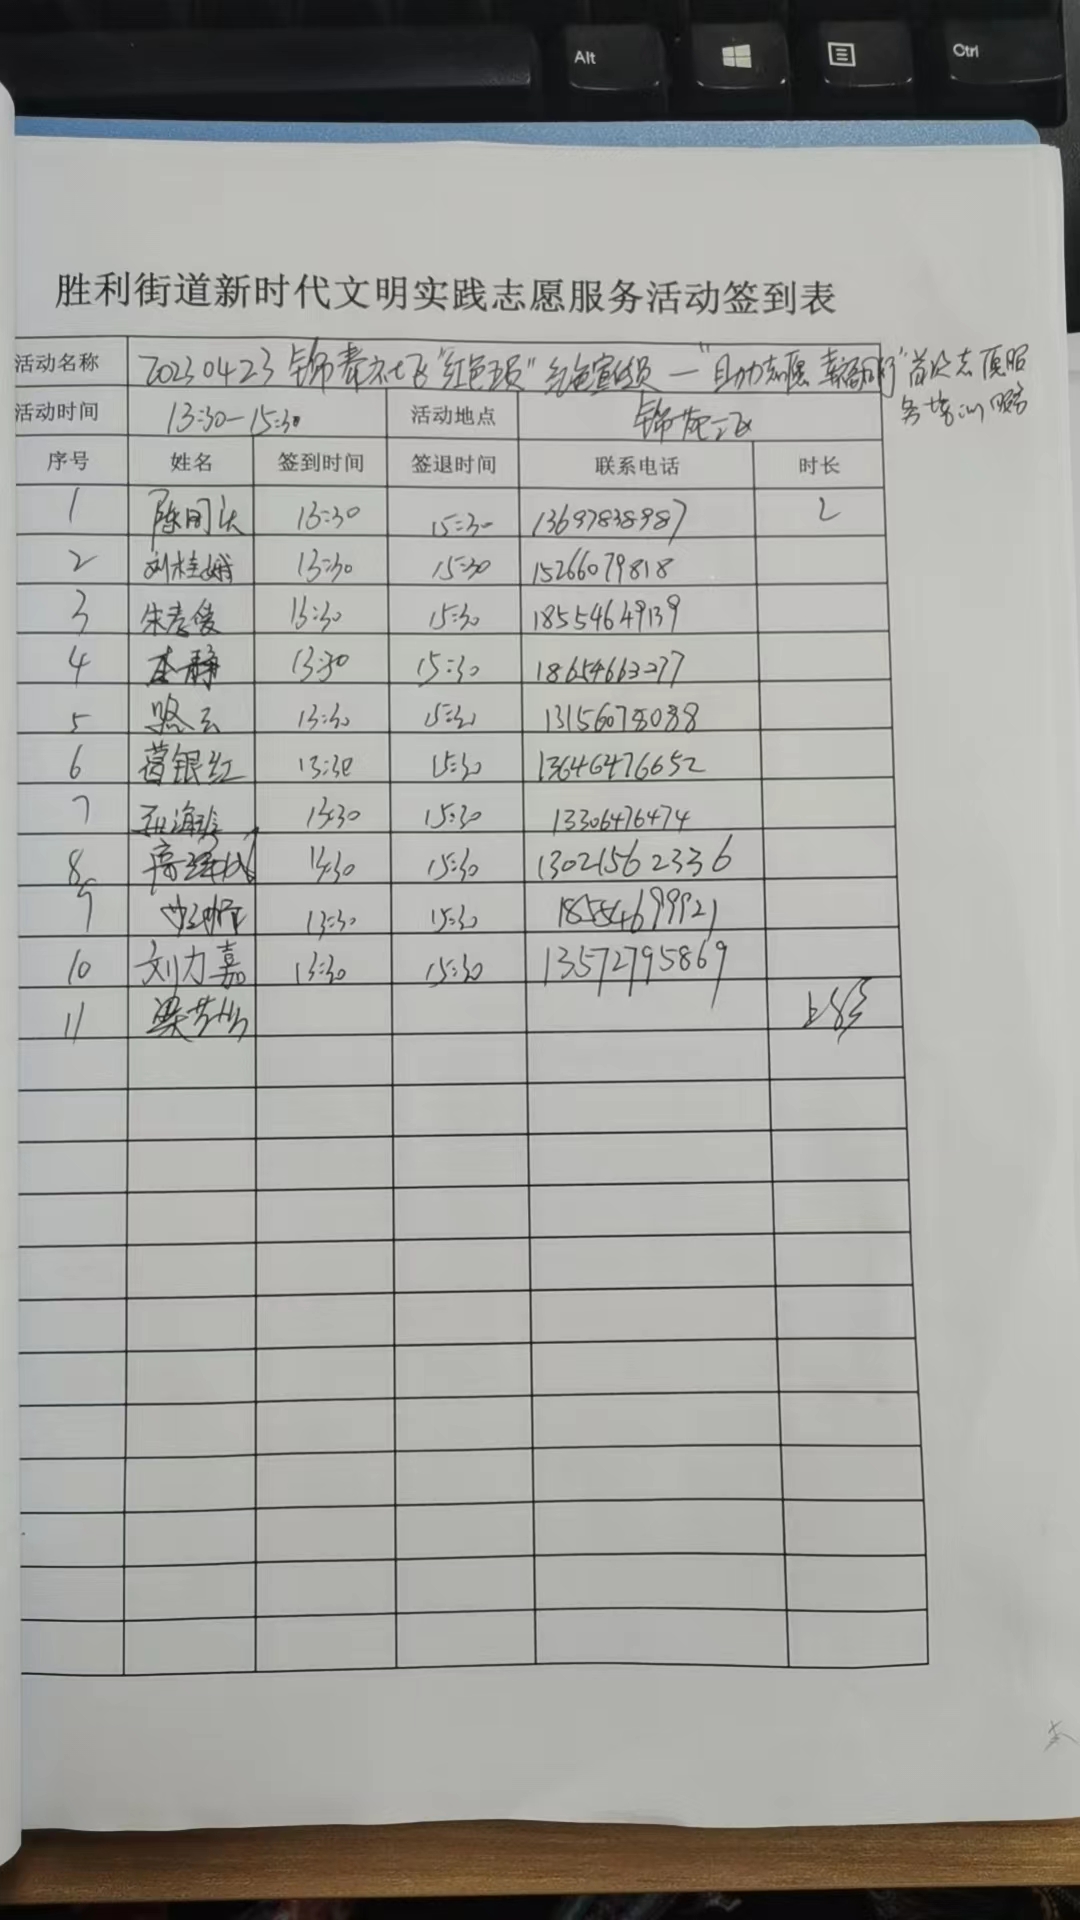 Alt
Ctrl
胜利街道新时代文明实践志愿服务活动签到表
活动名称 20230423 锦华社区"红色 " 宣 员 一"自助志愿 幸福同行"首次志愿服
务培训服务
活动时间 13:30-15:30 活动地点 锦 二区
序号 姓名 签到时间 签退时间 联系电话 时长
1 陈 13:30 15:30 13697838987 2
2 刘桂娥 13:30 15:30 15266079818
3 朱孝俊 13:30 15:30 18554649139
4 李静 13:30 15:30 18654663277
5 骆云 13:30 15:30 13156078088
6 葛银红 13:30 15:30 13646476652
7 海 13:30 15:30 13306476474
8 13:30 15:30 13021562336
9 13:30 15:30 18554699921
10 刘力嘉 13:30 15:30 13572795869
11 梁